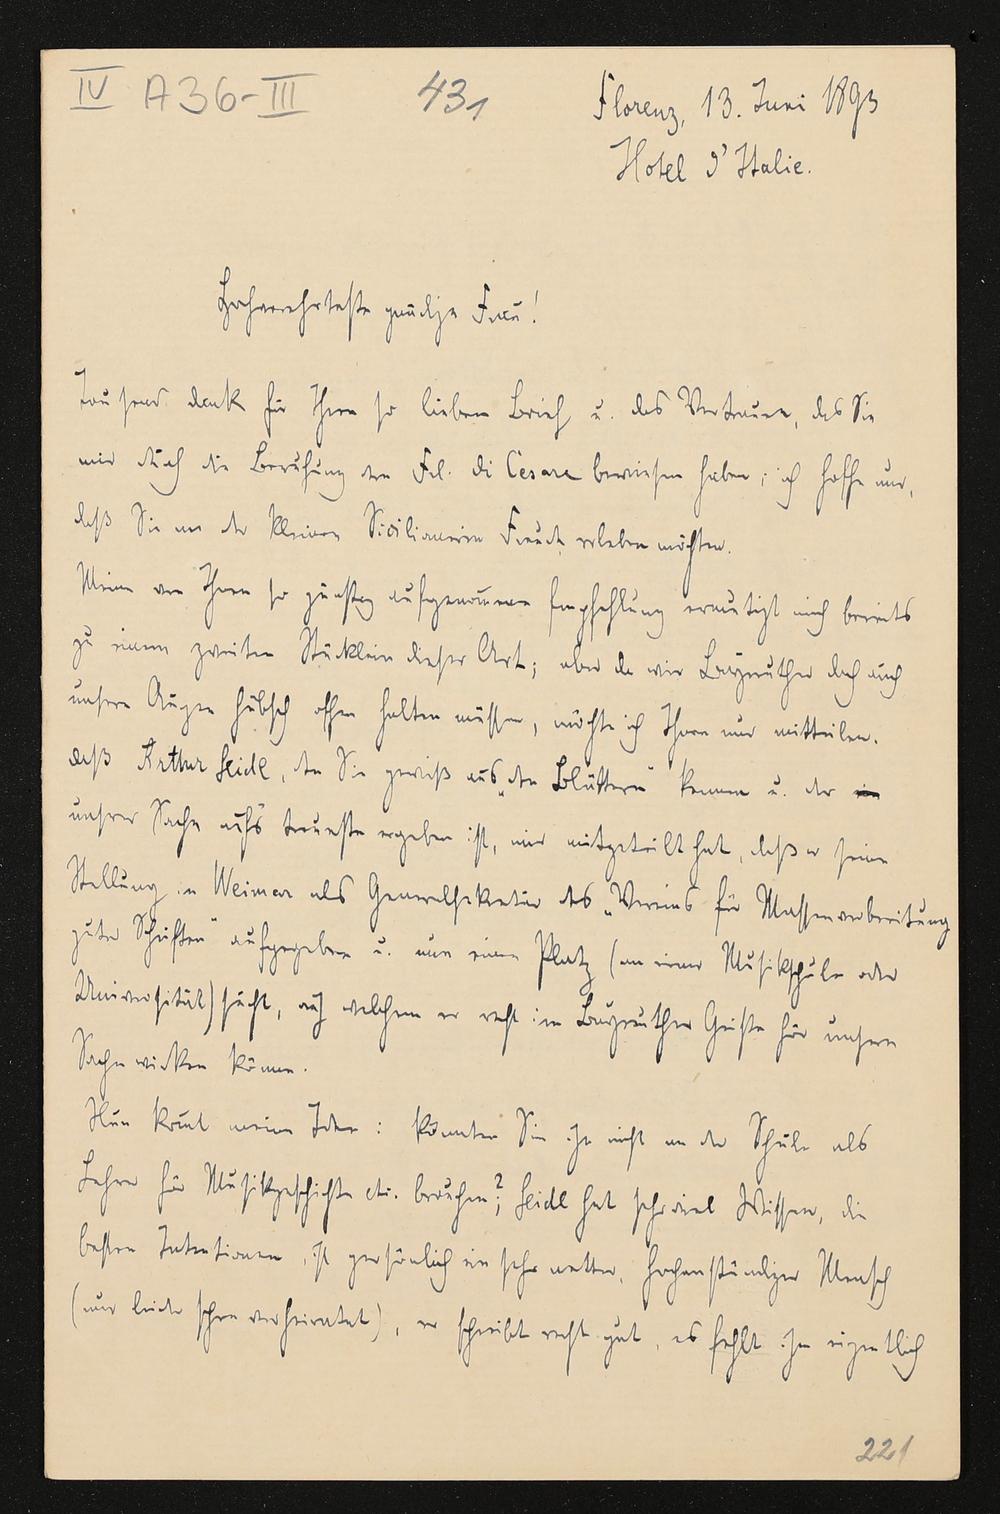 IV A 36-III 431
Florenz, 13. Juni 1893
Hotel d'Italie.
Hochverehrteste gnädige Frau!
Tausend dank für Ihren so lieben Brief u. das Vertrauen, das Sie
mir durch die Berufung der Frl. di Cesare bewiesen haben; ich hoffe nur,
daß Sie an der kleinen Sicilianerin Freude erleben möchten.
Meine von Ihnen so günstig aufgenommene Empfehlung ermutigt mich bereits
zu einem zweiten Stücklein dieser Art; aber da wir Bayreuther doch auch
unsere Augen hübsch offen halten müssen, möchte ich Ihnen nur mitteilen,
daß Arthur Seidl, den Sie gewiß aus „den Blättern" kennen u. der
unsrer Sache aufs treueste ergeben ist, mir mitgeteilt hat, daß er seine
Stellung in Weimar als Generalsekretär des „Vereins für Massenverbreitung
guter Schriften" aufgegeben u. nun einen Platz (an einer Musikschule oder
Universität) sucht, auf welchem er recht im Bayreuther Geiste für unsere
Sache wirken könne.
Nun kommt meine Idee: könnten Sie ihn nicht an der Schule als
Lehrer für Musikgeschichte etc. brauchen?; Seidl hat sehr viel Wissen, die
besten Intentionen, ist persönlich ein sehr netter, hochanständiger Mensch
(nur leider schon verheiratet), er schreibt recht gut, es fehlt ihm eigentlich
221